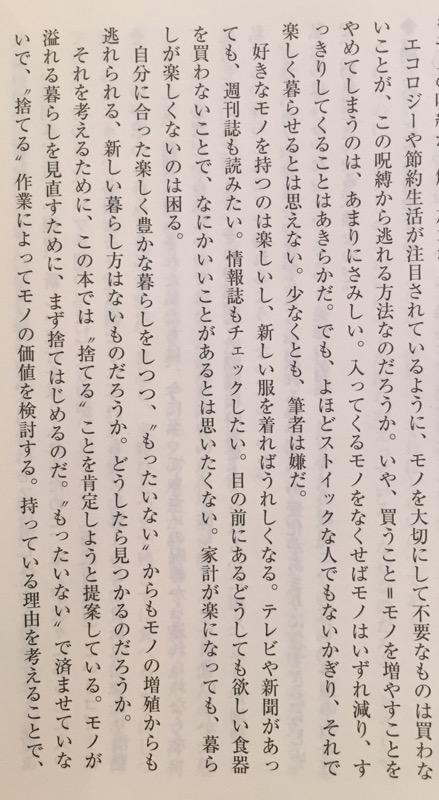 エコロジーや節約生活が注目されているように、モノを大切にして不要なものは買わな
いことが、この呪縛から逃れる方法なのだろうか。いや、買うこと＝モノを増やすことを
やめてしまうのは、あまりにさみしい。入ってくるモノをなくせばモノはいずれ減り、す
っきりしてくることはあきらかだ。でも、よほどストイックな人でもないかぎり、それで
楽しく暮らせるとは思えない。少なくとも、筆者は嫌だ。
好きなモノを持つのは楽しいし、新しい服を着ればうれしくなる。テレビや新聞があっ
ても、週刊誌も読みたい。情報誌もチェックしたい。目の前にあるどうしても欲しい食器
を買わないことで、なにかいいことがあるとは思いたくない。家計が楽になっても、暮ら
しが楽しくないのは困る。
自分に合った楽しく豊かな暮らしをしつつ、〝もったいない〟からもモノの増殖からも
逃れられる、新しい暮らし方はないものだろうか。どうしたら見つかるのだろうか。
それを考えるために、この本では〝捨てる〟ことを肯定しようと提案している。モノが
溢れる暮らしを見直すために、まず捨てはじめるのだ。〝もったいない〟で済ませていな
いで、〝捨てる〟作業によってモノの価値を検討する。持っている理由を考えることで、